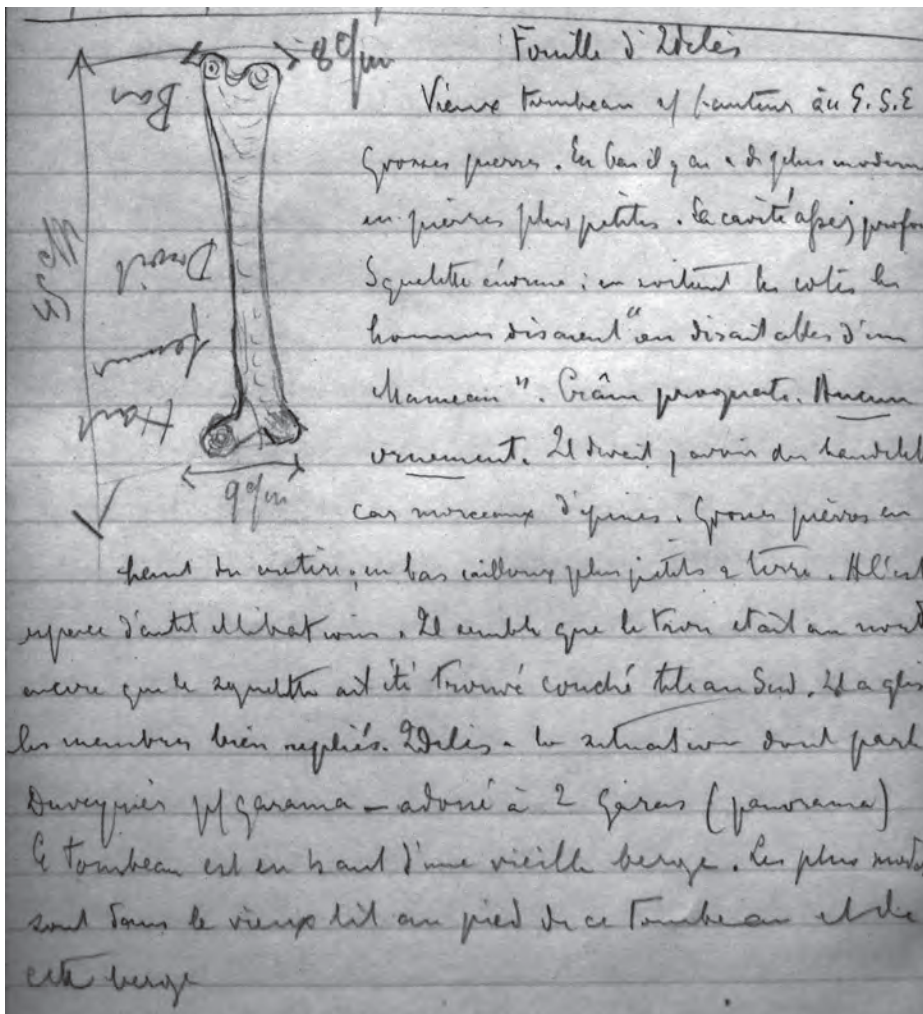 Fouille d'Idelès
8 c/m
Vieux tombeau s/ hauteur au S.S.E
Grosses pierres. En bas il y en a de plus modern
en pierres plus petites. La cavité assez profon
Squelette énorme ; en sortant les cotes les
hommes disaient "on dirait celles d'un
chameau". Crâne prognate. Aucun
ornement. Il devait y avoir des bandelet
car morceaux d'épines. Grosses pierres en
haut du ; en bas cailloux plus petits & terre. A l'est
espece d'autel . Il semble que le trou etait au nord
encore que le squelette ait été trouvé couché tête au Sud. Il a
les membres bien repliés. Idelès a la situation dont parle
Duveyrier p/ garama — adossé à 2 garas (panorama)
Ce tombeau est en haut d'une vieille berge. Les plus mode
sont dans le vieux lit au pied de ce tombeau et de
cette berge
Bas
Droit
femur
Haut
9 c/m